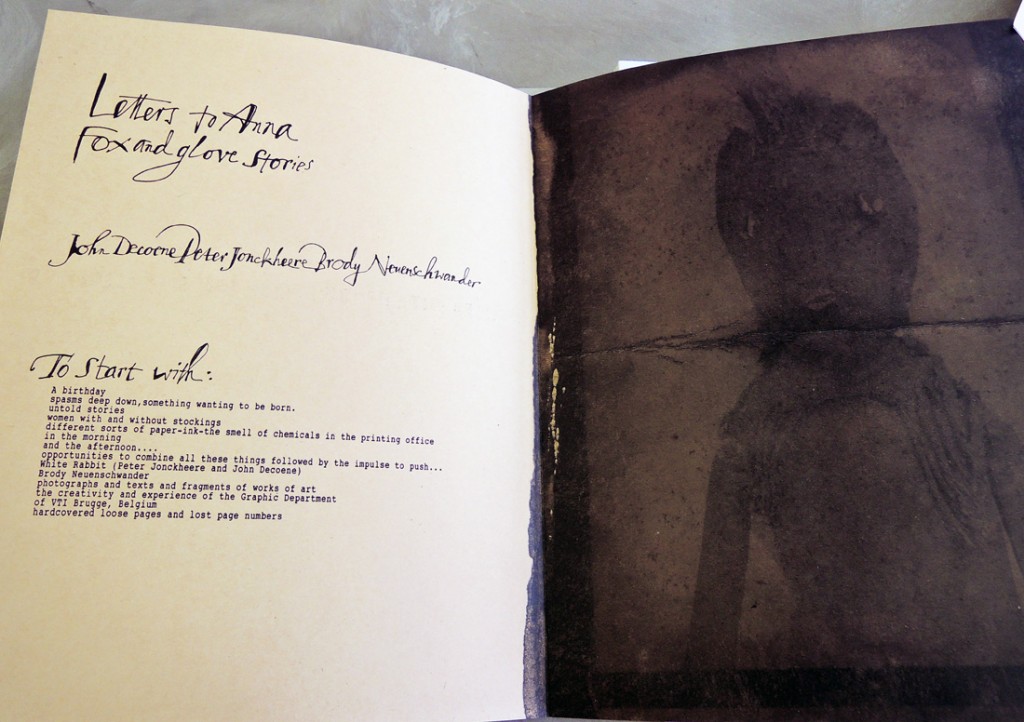 Letters to Anna
Fox and glove Stories
John Decoene Peter Jonckheere Brody Neuenschwander
To Start with:
A birthday
spasms deep down,something wanting to be born.
untold stories
women with and without stockings
different sorts of paper-ink-the smell of chemicals in the printing office
in the morning
and the afternoon....
opportunities to combine all these things followed by the impulse to push...
White Rabbit (Peter Jonckheere and John Decoene)
Brody Neuenschwander
photographs and texts and fragments of works of art
the creativity and experience of the Graphic Department
of VTI Brugge, Belgium
hardcovered loose pages and lost page numbers